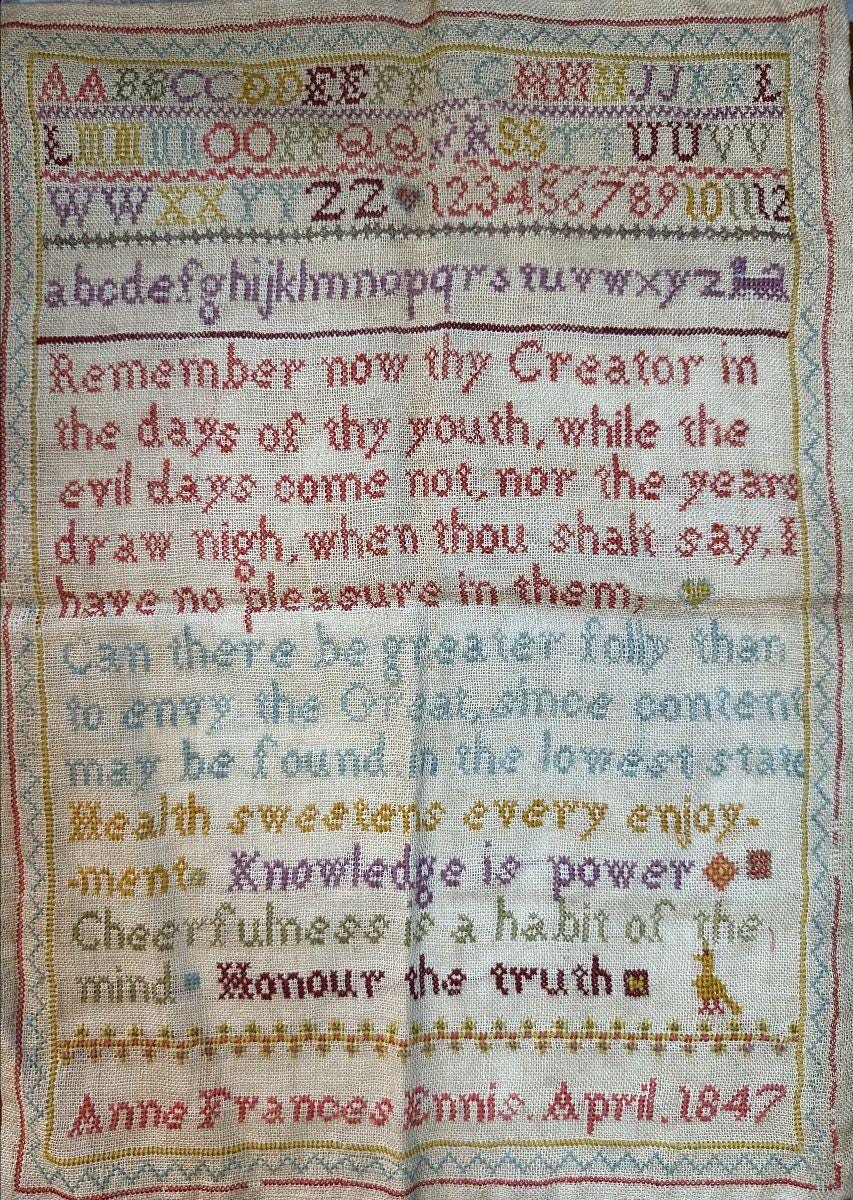 AABBCCDDEEFFGGHHIIJJKKLL
LMMNNOOPPQQRRSSTTUUVV
WWXXYYZZ 123456789101112
abcdefghijklmnopqrstuvwxyz
Remember now thy Creator in
the days of thy youth, while the
evil days come not, nor the years
draw nigh, when thou shalt say, I
have no pleasure in them;
Can there be greater folly than
to envy the Great, since content
may be found in the lowest state
Health sweetens every enjoy-
-ment Knowledge is power
Cheerfulness is a habit of the
mind Honour the truth
Anne Frances Ennis. April. 1847